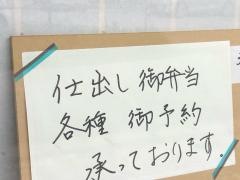 仕出し 御弁当
各種 御予約
承っております.